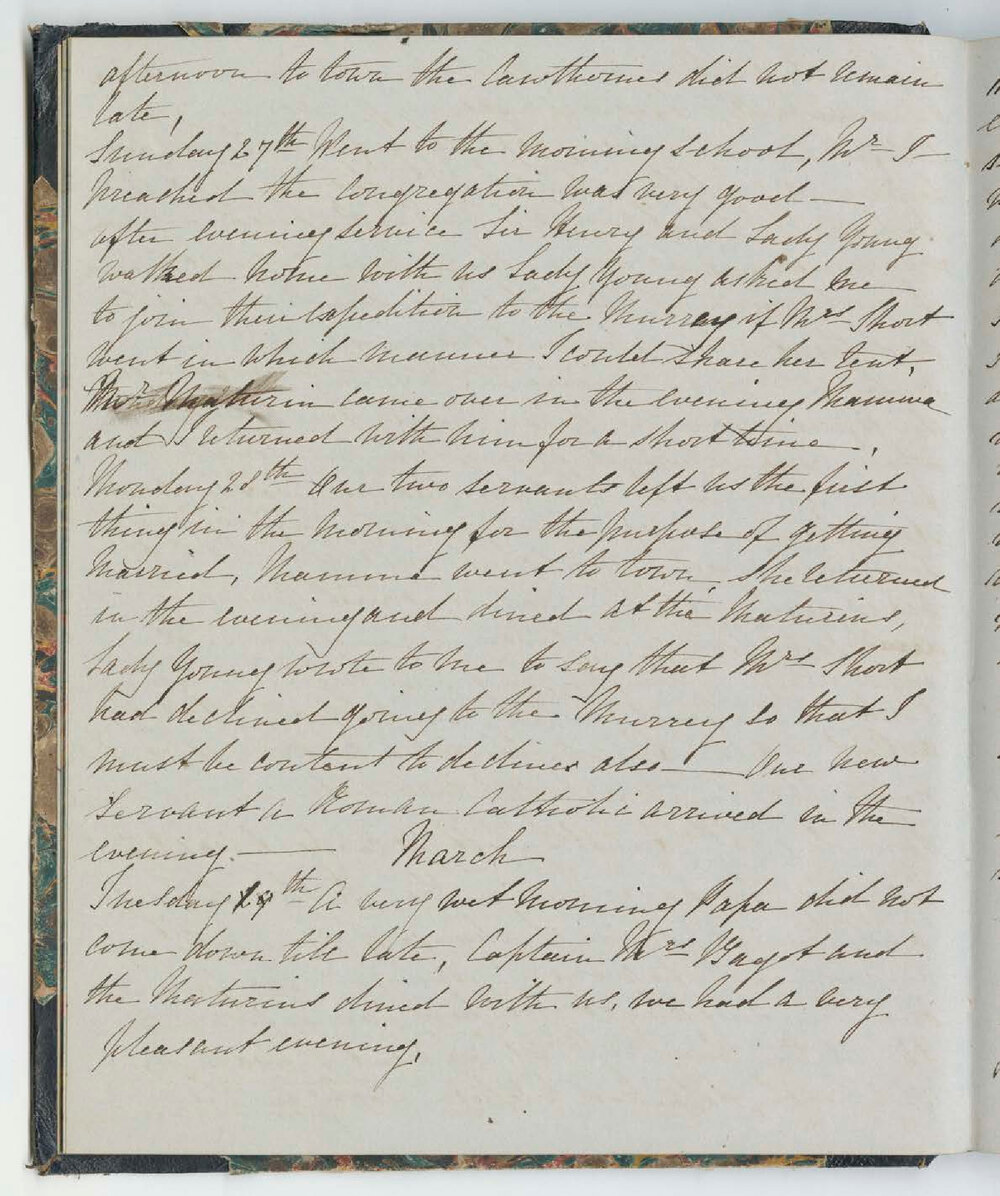 afternoon to town the Cawthornes did not remain
late,
Sunday 27th Went to the morning school, Mr I—
preached the congregation was very good —
after evening service Sir Henry and Lady Young
walked home with us Lady Young asked me
to join their expedition to the Murray if Mrs Short
went in which manner I could share her tent,
Mr Maturin came over in the evening Mamma
and I returned with him for a short time.
Monday 28th Our two servants left us the first
thing in the morning for the purpose of getting
married, Mamma went to town, she returned
in the evening and dined at the Maturins,
Lady Young wrote to me to say that Mrs Short
had declined going to the Murray so that I
must be content to decline also — Our new
servant a Roman Catholic arrived in the
evening. — March
Tuesday th A very wet morning Papa did not
come down till late, Captain Mrs Bagot and
the Maturins dined with us, we had a very
pleasant evening,